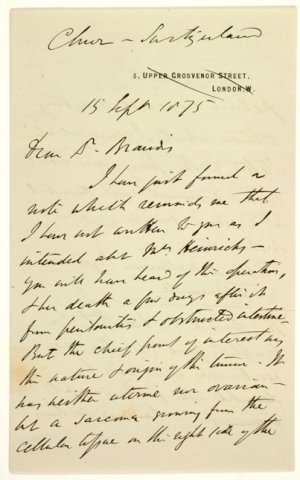 Chur - Switzerland
3, UPPER GROSVENOR STREET,
LONDON. W.
15 Sept 1875
Dear Dr. Brandis
I have just found a
note which reminds me that
I have not written to you as I
intended abt Mrs Heinrichs -
You will have heard of the operation,
& her death a few days after it
from peritonitis & obstructed intestine.
But the chief point of interest was
the nature & origin of the tumor. It
was neither uterine nor ovarian -
but a sarcoma growing from the
cellular tissue on the right side of the